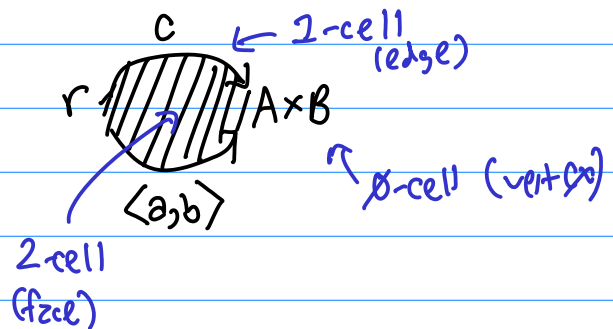 c
1-cell
(edge)
r
A×B
0-cell (vertex)
<a,b>
2-cell
(face)